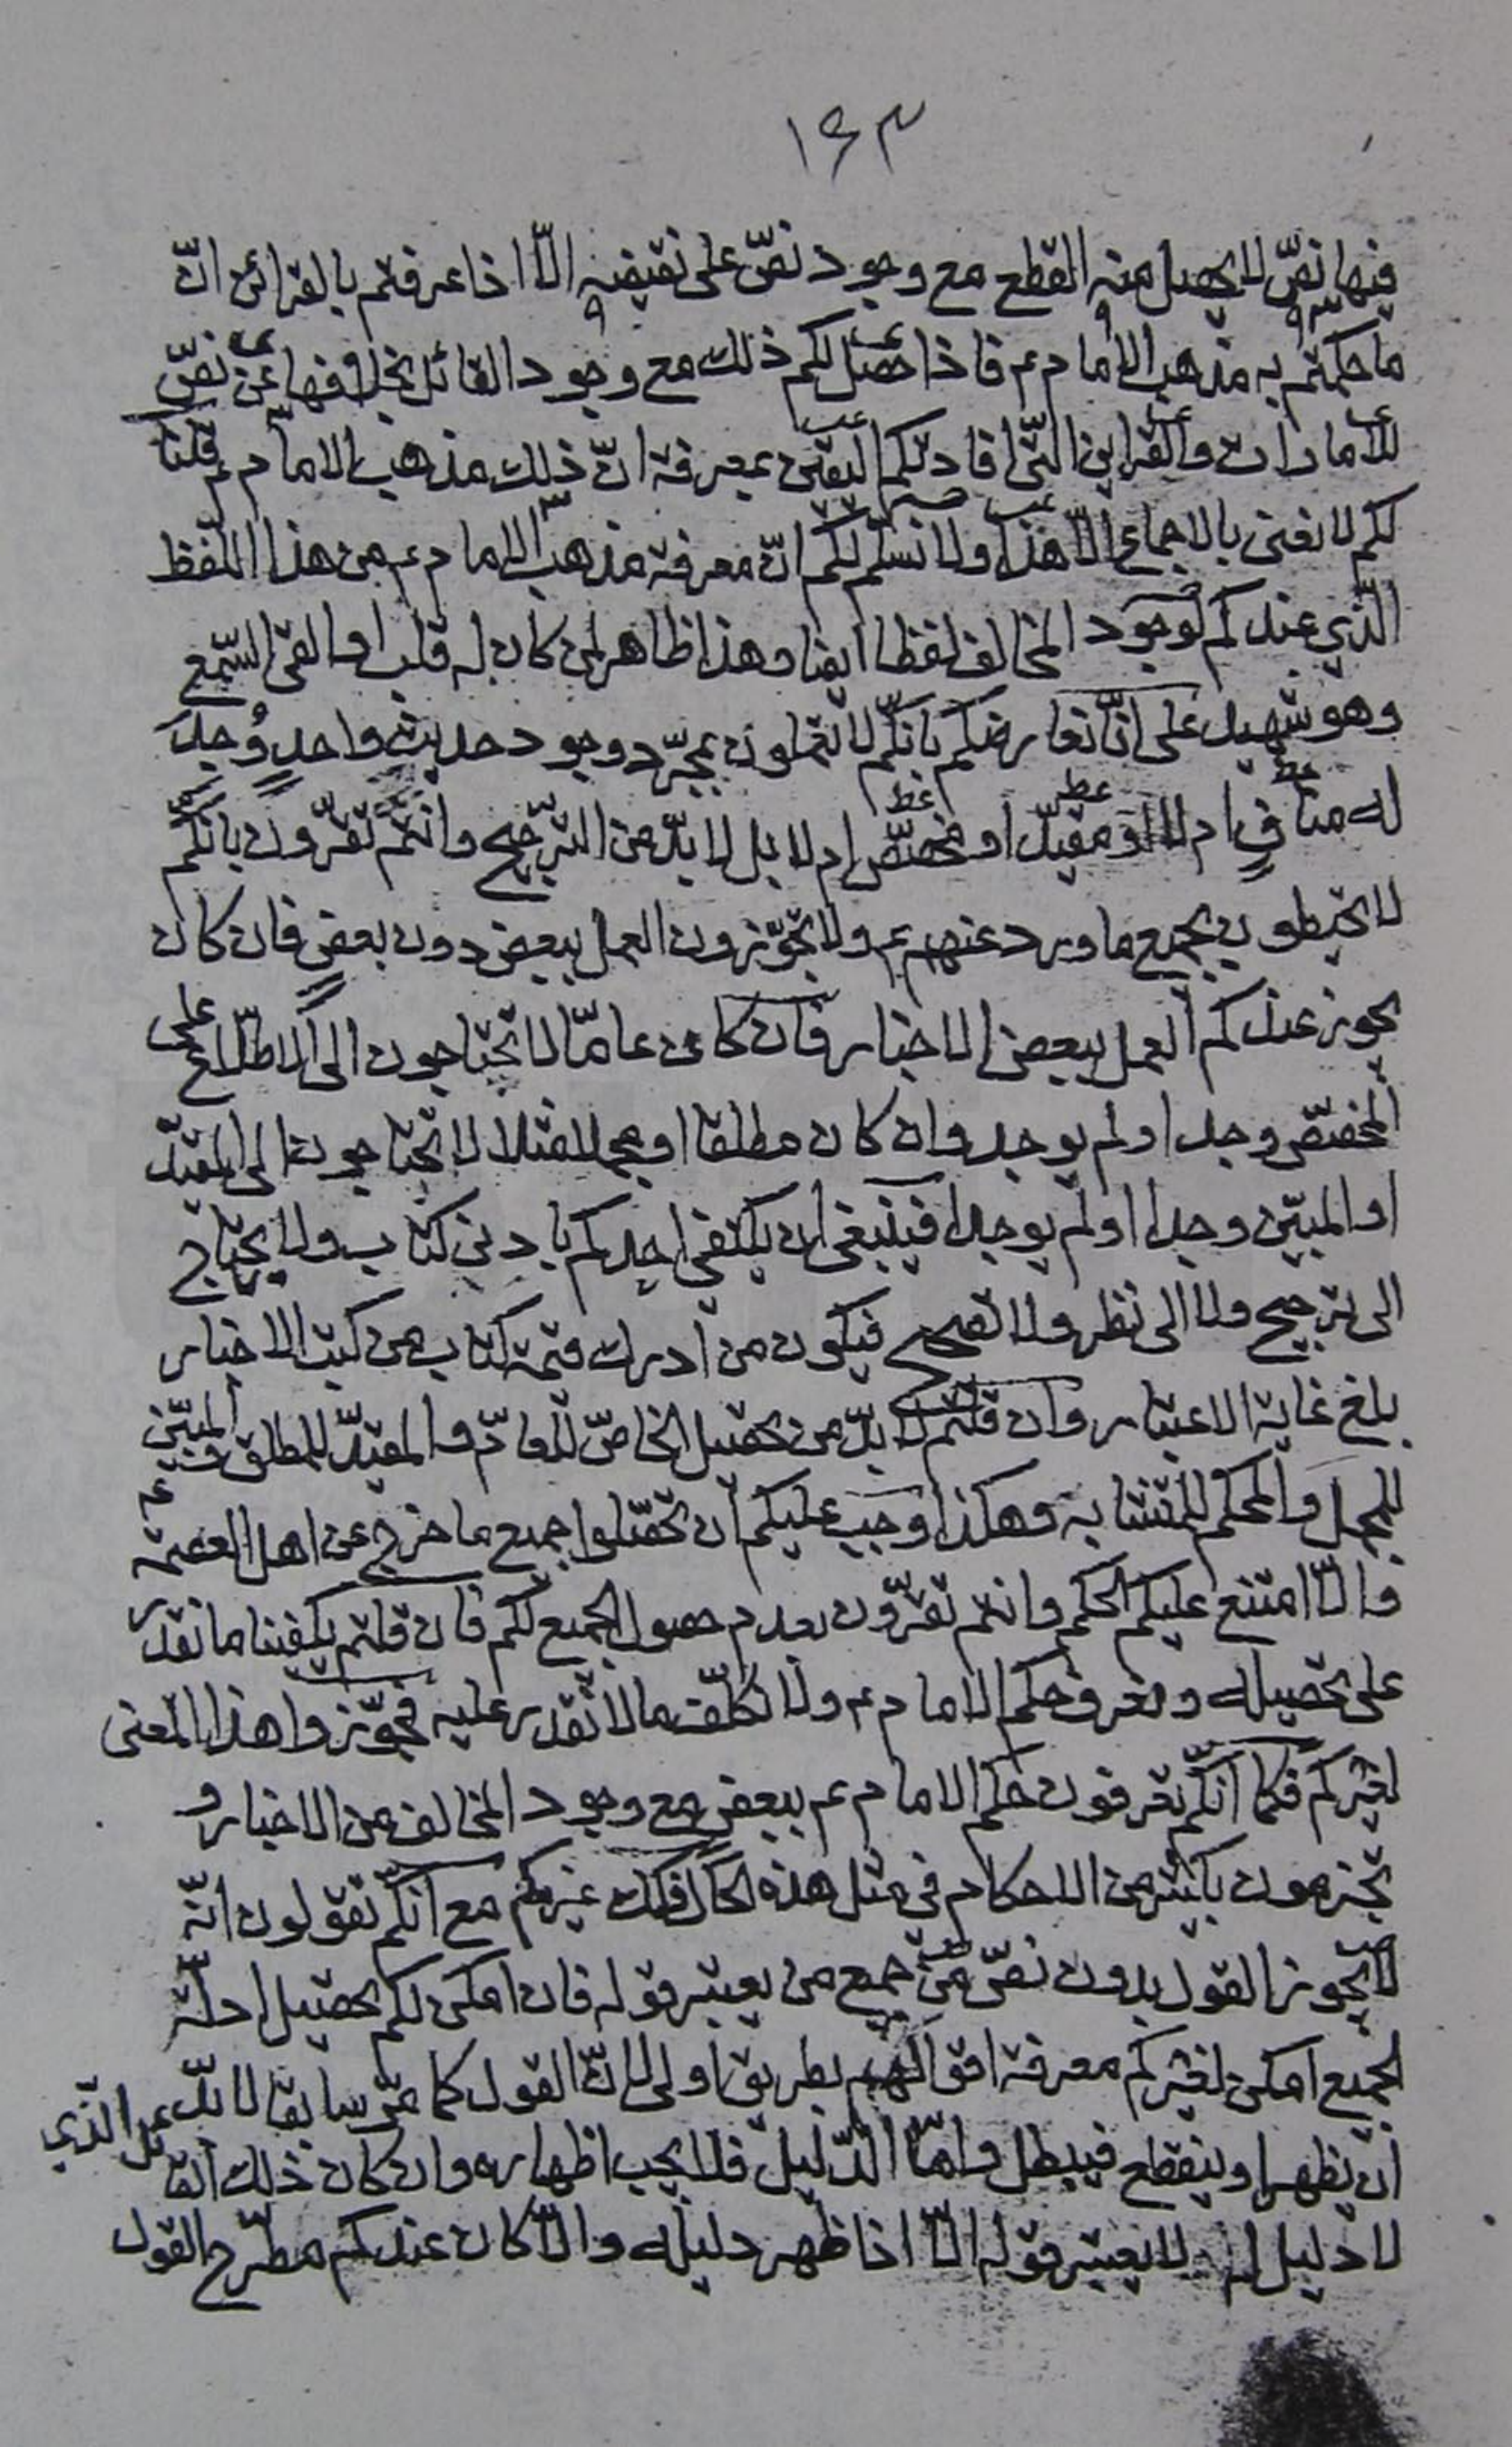 ١٤٣
فيها نصّ لا يحصل منه القطع مع وجود نصّ على نقيضه الّا اذا عرفتم بالقرائن انّ
ما حكمتم به مذهب الامام ع فاذا حصل لكم ذلك مع وجود القائل بخلافها عن نصّ
للأمارات والقراين الّتى افادتكم اليقين بمعرفة انّ ذلك مذهب الامام ع قلنا
لكم لا نعنى بالاجماع الّا هذا ولا نسلّم لكم انّ معرفة مذهب الامام ع من هذا اللّفظ
الّذي عندكم لوجود المخالف لفظا ايضا وهذا ظاهر لمن كان له قلب او القى السّمع
وهو شهيد على انّا نعارضكم بانّكم لا تعملون بمجرّد وجود حديث واحد وُجِدَ
له منافٍ ام لا او مقيّد او مخصّص ام لا بل لا بدّ من التّرجيح وانتم تقرّون بانّكم
لا تحيطون بجميع ما ورد عنهم ع ولا تجوّزون العمل ببعض دون بعض فان كان
يجوز عندكم العمل ببعض الاخبار فان كان عامّا لا تحتاجون الى الاطّلاع على
المخصّص وجد او لم يوجد وان كان مطلقا او مجملا مثلا لا تحتاجون الى المقيّد
او المبيّن وجدا او لم يوجدا فينبغى ان يكتفى احدكم بادنى كتاب ولا يحتاج
الى ترجيح ولا الى نظر ولا تصحيح فيكون من ادرك قسمة كتاب من كتب الاخبار
بلغ غاية الاعتبار وان قلتم لا بدّ من تحصيل الخاصّ للعامّ والمقيّد للمطلق والمبيّن
للمجمل والمحكم للمتشابه وهكذا وجب عليكم ان تحصّلوا جميع ما خرج عن اهل العصمة ع
والّا امتنع عليكم الحكم وانتم تقرّون بعدم حصول الجميع لكم فان قلتم يكفينا ما نقدر
على تحصيله ونعرف حكم الامام ع ولا نكلّف ما لا نقدر عليه فجوّزوا هذا المعنى
لغيركم فكما انّكم تعرفون حكم الامام ع ببعض مع وجود المخالف من الاخبار و
تجزمون بكثير من الاحكام في مثل هذه الحال فكذلك غيركم مع انّكم تقولون انّه
لا يجوز القول بدون نصّ من جميع من يعتبر قوله فان امكن لكم تحصيل ادلّة
الجميع امكن لغيركم معرفة اقوالهم بطريق اولى لانّ القول كما مرّ سابقا لا بدّ
ان يظهر او ينقطع فيبطل وامّا الدّليل فلا يجب اظهاره وان كان ذلك القائل الّذي
لا دليل له لا يعتبر قوله الّا اذا ظهر دليله والّا كان عندكم مطّرح القول